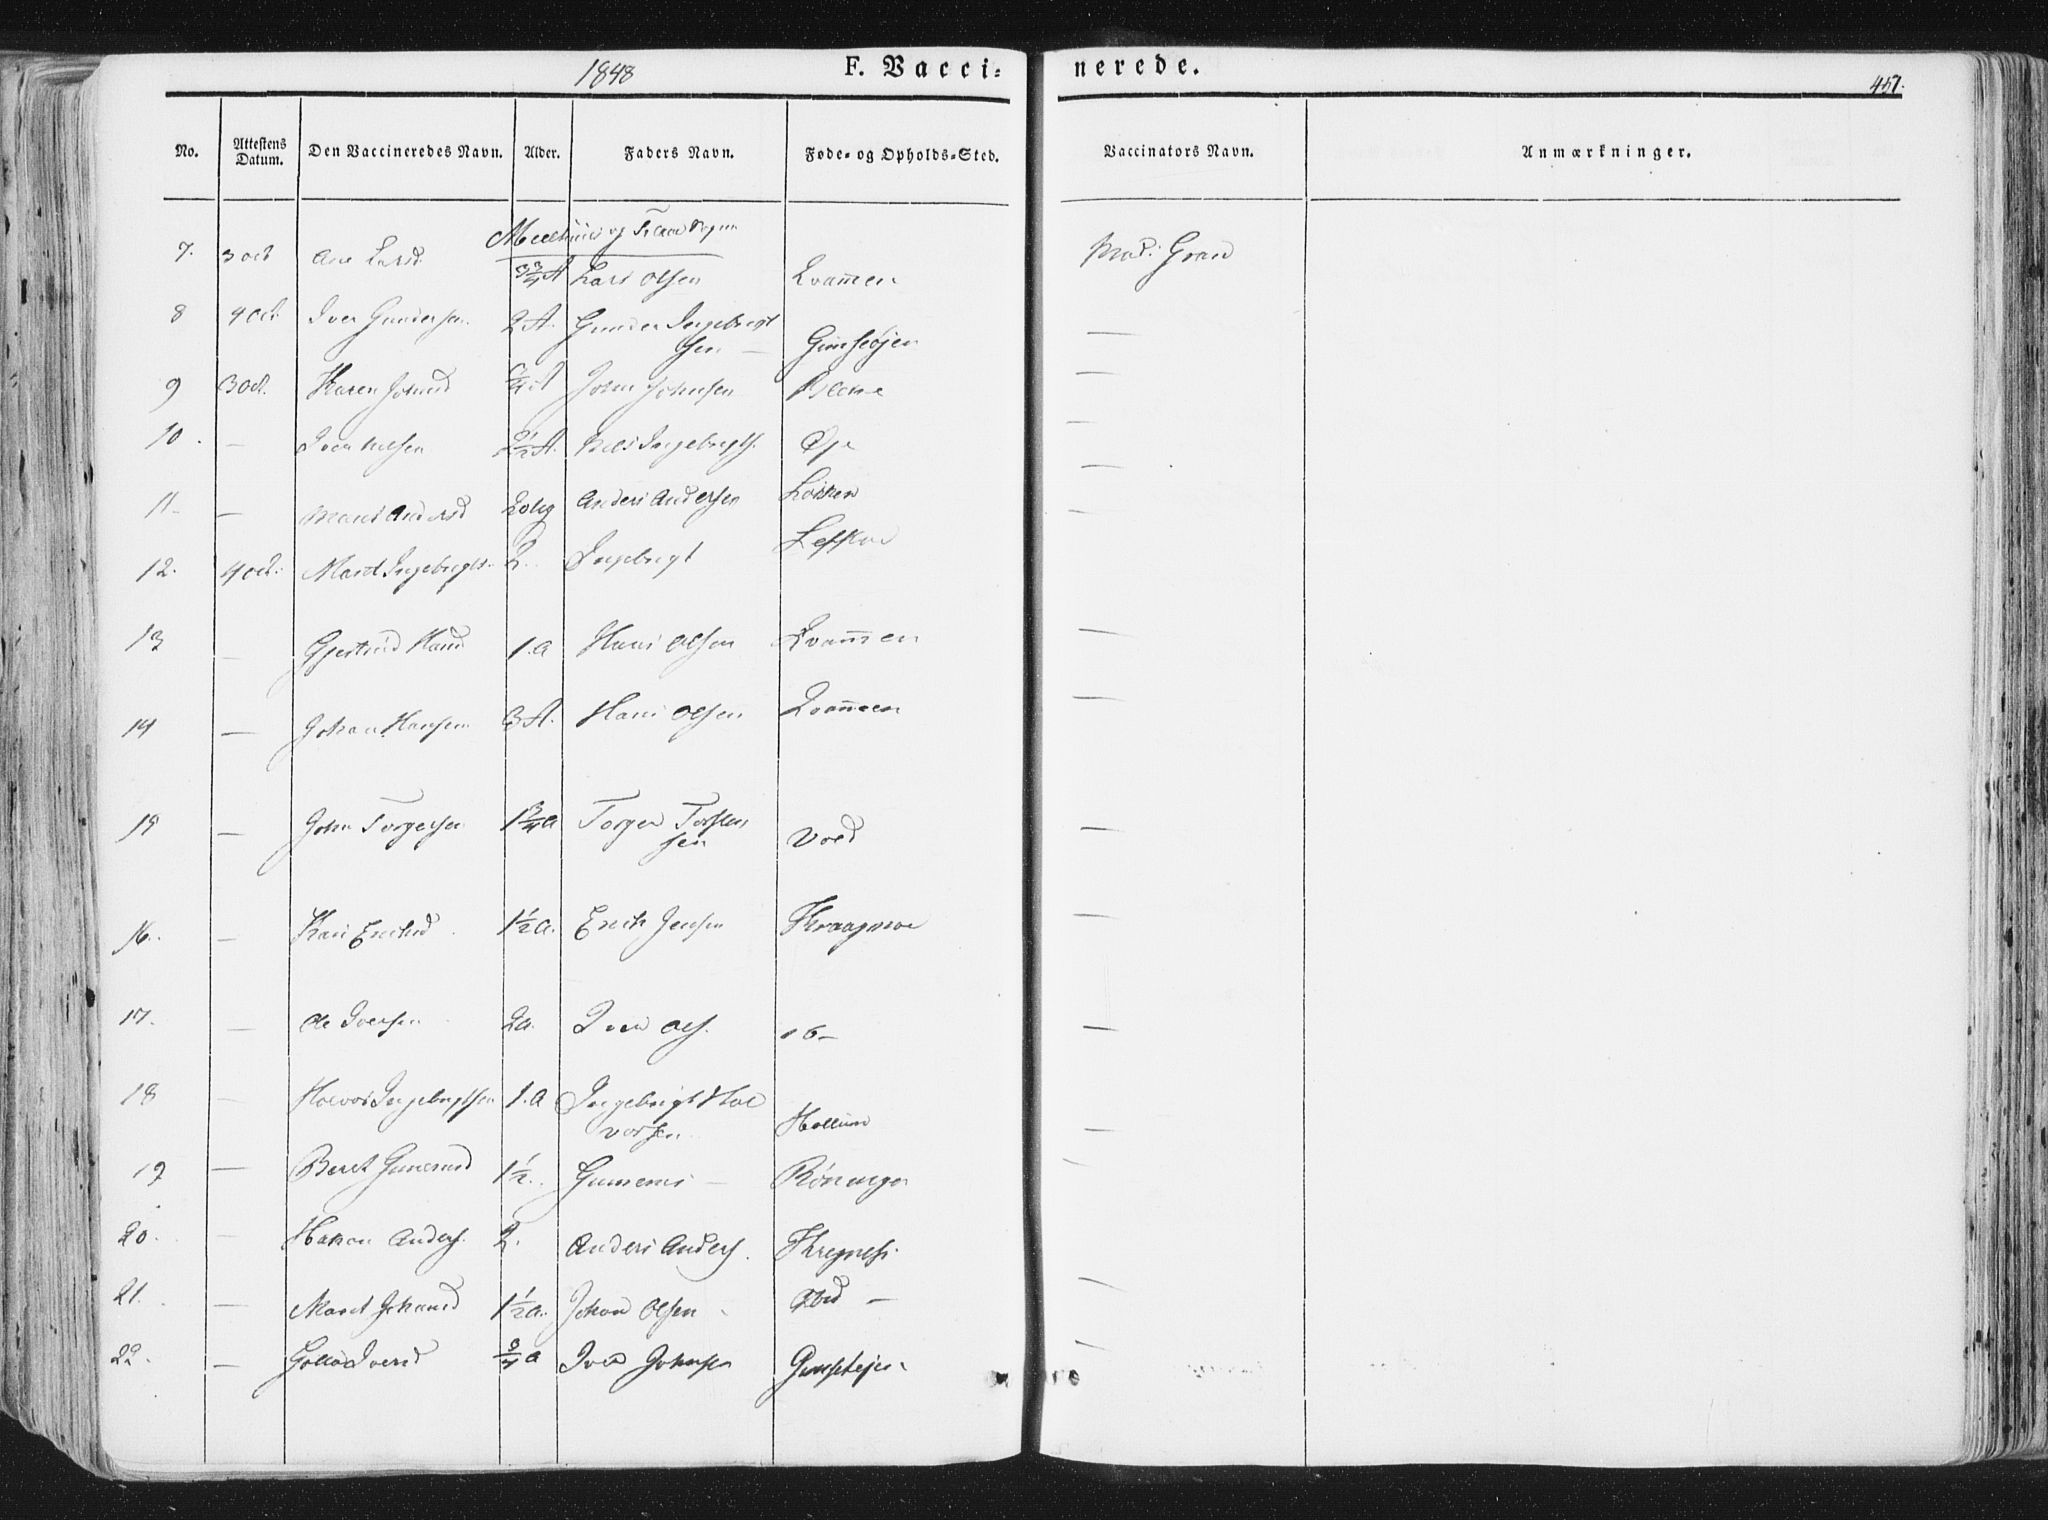 1848 F. Vacci= nerede. 451.
No. Attestens Datum. Den Vaccineredes Navn. Alder. Faders Navn. Føde= og Opholds=Sted. Vaccinators Navn. Anmærkninger.
Meelhuus og Flaae Sogne
7. 3 Oct Ane Larsd 3 3/4 A Lars Olsen Qvammen Mad: Gran
8 4 Oct. Iver Gundersen 2 A. Gunder Ingebrigt
sen — Gimseøjen —
9 3 Oct. Karen Johnsd A John Johnsen —
10. — Iver Nelsen 2 1/2 A. Nels Ingebrigts. Øje —
11 — Marit Andersd 2 Anders Andersen Løkken —
12. 4 Oct: Marit Ingebrigts. 2. Ingebrigt —
13 — Gjertrud Hansd 1. a Hans Olsen Qvammen —
14 — Johan Hansen 3 A. Hans Olsen Qvammen —
15 — John Torgersen 1 3/4 a Torger Torsten
sen Vold —
16. — Kari Erichsd 1 1/2 a. Erich Jensen Kraagmoe —
17. — Ole Iversen 2 a. Iver Ols. ib — —
18 — Halvor Ingebrigtsen 1. a Ingebrigt Hal
vorsen Hollum —
19 — Beret Gunerusd 1 1/2. Gunnerus — —
20. — Hakon Anders. 2. Anders Anders. Kregness
21. — Marit Johansd 1 1/2 a. Johan Olsen — —
22. — Iversd 3/4 a Iver Johnsen —